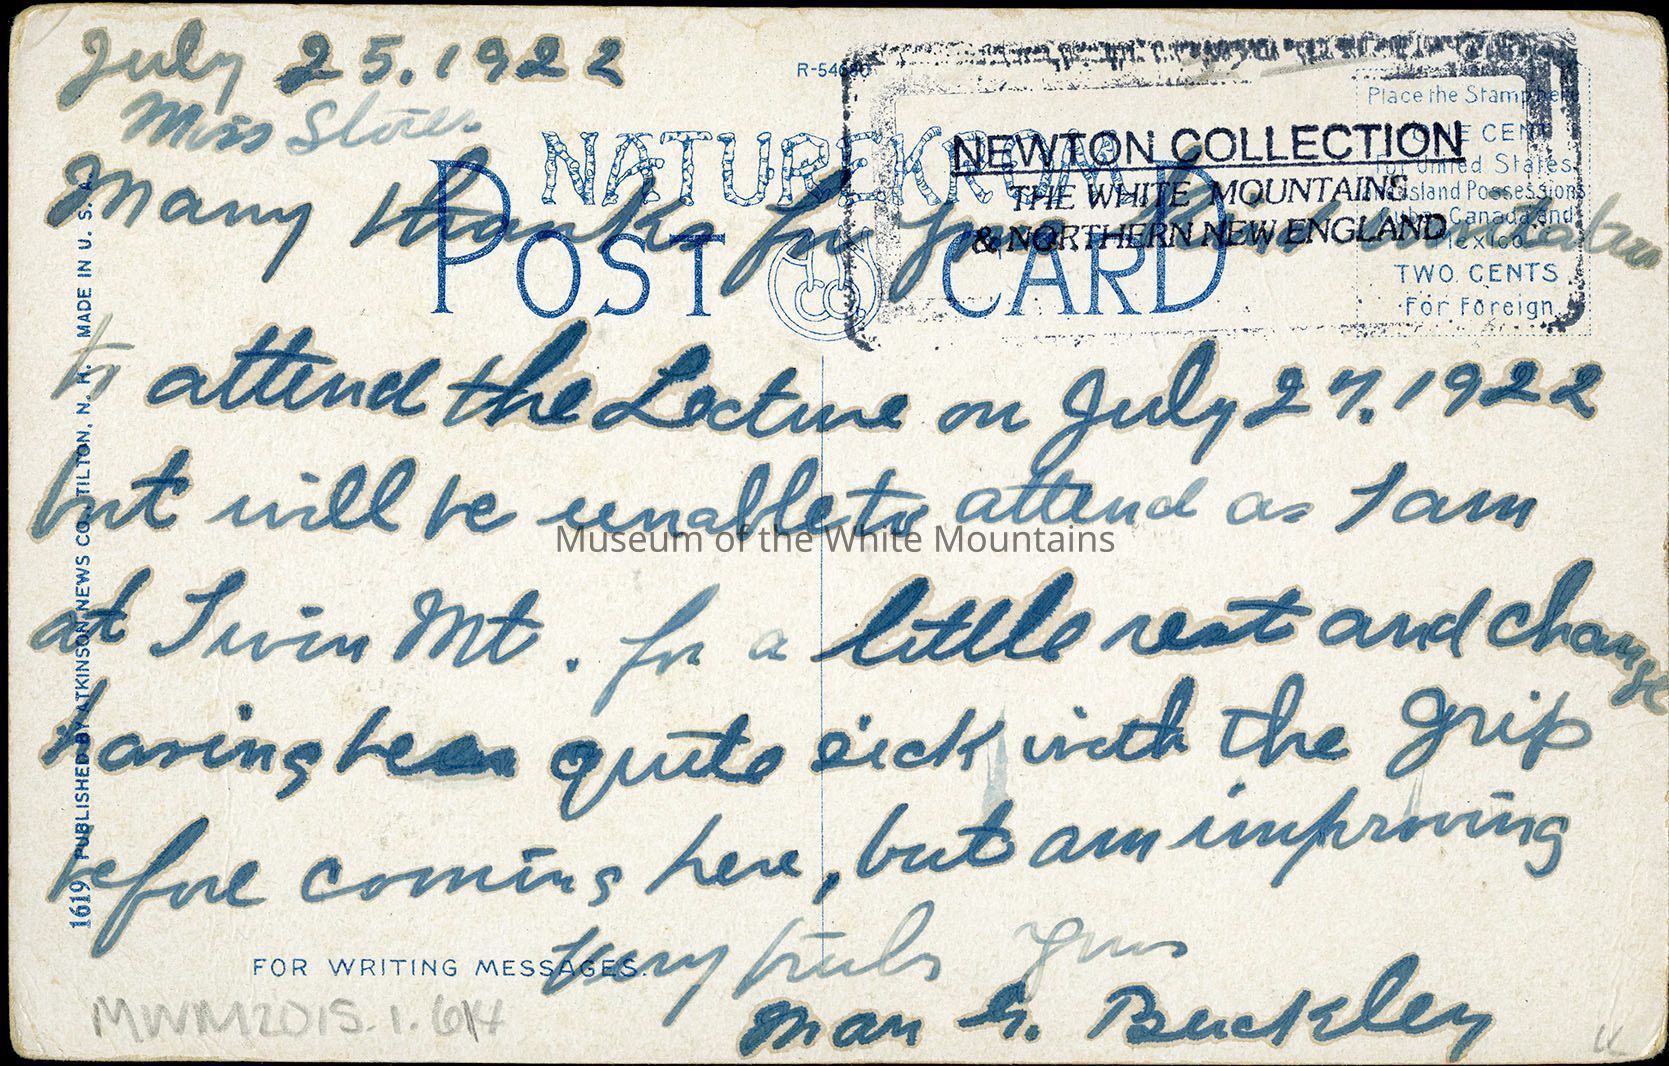 July 25. 1922
Miss
R-54640
Place the Stamp here
ONE CENT
For United States
Island Possessions
Cuba, Canada and
Mexico
TWO CENTS
For Foreign
NATUREKROM
POST CARD
NEWTON COLLECTION
THE WHITE MOUNTAINS
& NORTHERN NEW ENGLAND
Many thanks for your kind invitation
to attend the Lecture on July 27. 1922
but will be unable to attend as I am
at Twin Mt. for a little rest and change
having been quite sick with the grip
before coming here, but am improving
Very truly yours
G. Buckley
FOR WRITING MESSAGES.
1619 PUBLISHED BY ATKINSON NEWS CO. TILTON, N. H. MADE IN U. S. A.
Museum of the White Mountains
MWM2015.1.614